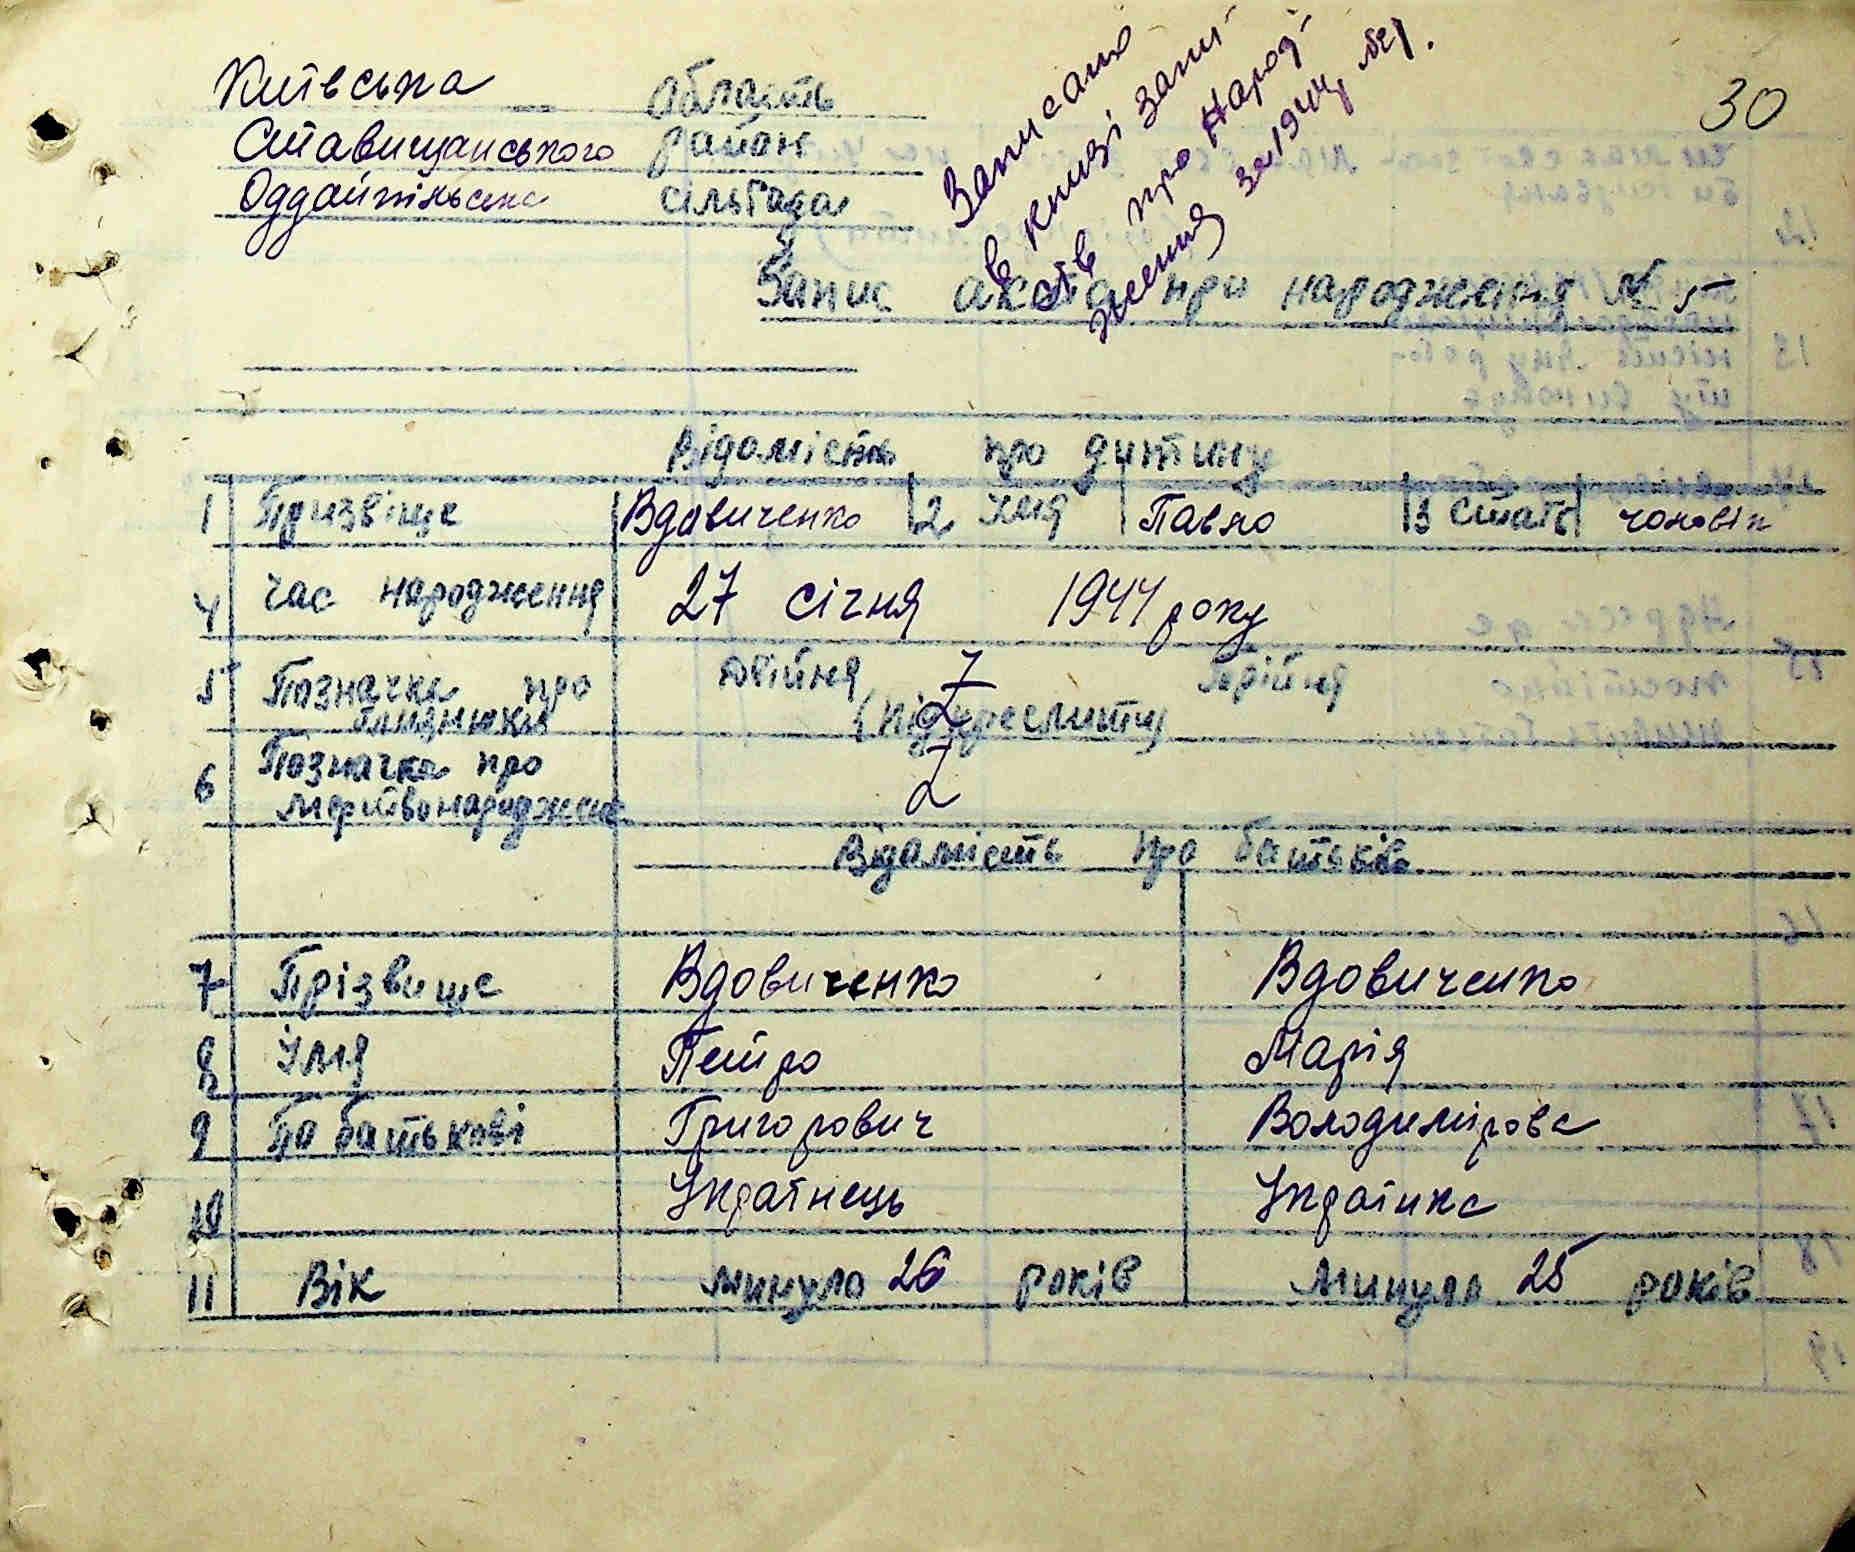 30
Київська область
Ставищанського район
Оддайпільська сільрада
Записано
в книзі запи-
сів про народ-
ження за 1944 р.
Запис акта при народження № 5
Відомість про дитину
1 Призвіще Вдовиченко 2 Імя Павло 3 Стать чоловік
4 час народження 27 січня 1944 року
5 Позначка про двійня трійня
близнюків (підкреслити)
6 Позначка про
мертвонароджених
Відомість про батьків
7 Прізвище Вдовиченко Вдовиченко
8 Імя Петро Марія
9 По батькові Григорович Володимірова
10 Українець Українка
11 Вік минуло 26 років минуло 25 років